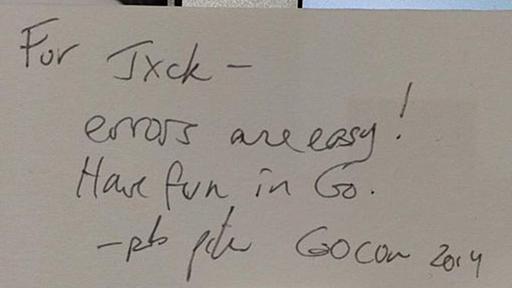 For Jxck -
errors are easy!
Have fun in Go.
GoCon 2014